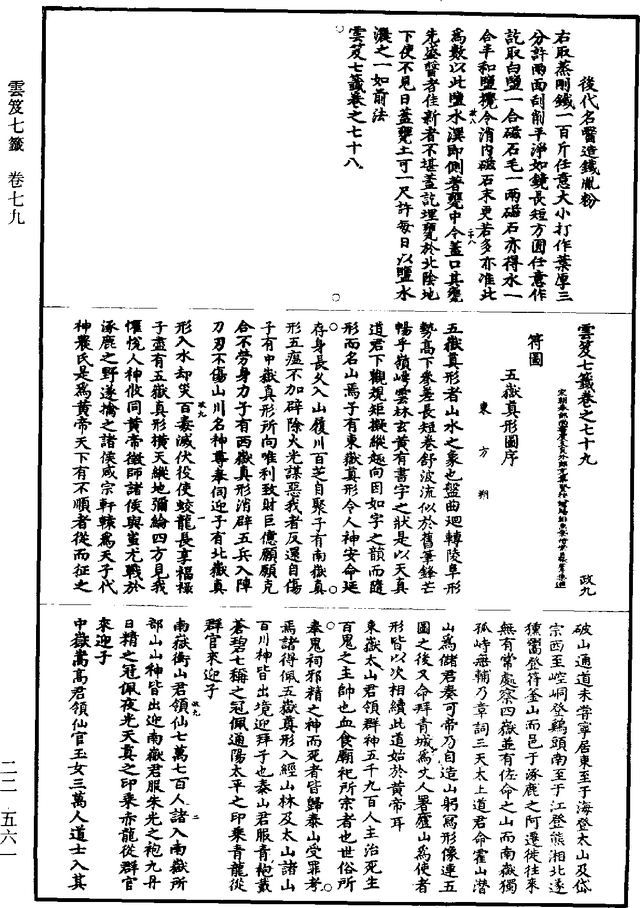 後代名醫造鐵胤粉
右取蒸剛鐵一百斤任意大小打作葉厚三
分許兩面刮削平淨如鏡長短方圓任意作
訖取白鹽一合磁石毛一兩磁石亦得水一
合半和鹽攪令消內磁石末更若多亦准此
為數以此鹽水潠即側著甕中令蓋口其甕
先盛醬者佳新者不堪蓋訖埋甕於北陰地
下使不見日蓋甕土可一尺許每日以鹽水
潠之一如前法
雲笈七籤卷之七十八
雲笈七籤卷之七十九 政九
符圖
五嶽真形圖序
東方朔
五嶽真形者山水之象也盤曲迴轉陵阜形
勢高下參差長短卷舒波流似於舊筆鋒芒
暢乎嶺崿雲林玄黃有書字之狀是以天真
道君下觀規矩擬縱趣向因如字之韻而隨
形而名山焉子有東嶽真形令人神安命延
存身長久入山履川百芝自聚子有南嶽真
形五瘟不加辟除火光謀惡我者反還自傷
子有中嶽真形所向唯利致財巨億願願克
合不勞身力子有西嶽真形消辟五兵入陣
刀刃不傷山川名神尊奉伺迎子有北嶽真
形入水却災百毒滅伏役使蛟龍長享福祿
子盡有五嶽真形橫天縱地彌綸四方見我
懽悅人神攸同黃帝徵師諸侯與蚩尤戰於
涿鹿之野遂擒之諸侯咸宗軒轅為天子代
神農氏是為黃帝天下有不順者從而征之
破山通道未嘗寧居東至于海登太山及岱
宗西至崆峒登鷄頭南至于江登熊湘北逐
獯鬻登符釜山而邑于涿鹿之阿遷徙往來
無有常處察四嶽並有佐命之山而南嶽獨
孤峙無輔乃章詞三天太上道君命霍山潛
山為儲君奏可帝乃自造山躬寫形像連五
圖之後又命拜青城為丈人署廬山為使者
形皆以次相續此道始於黃帝耳
東嶽太山君領群神五千九百人主治死生
百鬼之主帥也血食廟祀所宗者也世俗所
奉鬼祠邪精之神而死者皆歸泰山受罪考
焉諸得佩五嶽真形入經山林及太山諸山
百川神皆出境迎拜子也泰山君服青袍戴
蒼碧七稱之冠佩通陽太平之印乘青龍從
群官來迎子
南嶽衡山君領仙七萬七百人諸入南嶽所
部山山神皆出迎南嶽君服朱光之袍九丹
日精之冠佩夜光天真之印乘赤龍從群官
來迎子
中嶽嵩高君領仙官玉女三萬人道士入其
雲笈七籤 卷七九
二二‧五六一